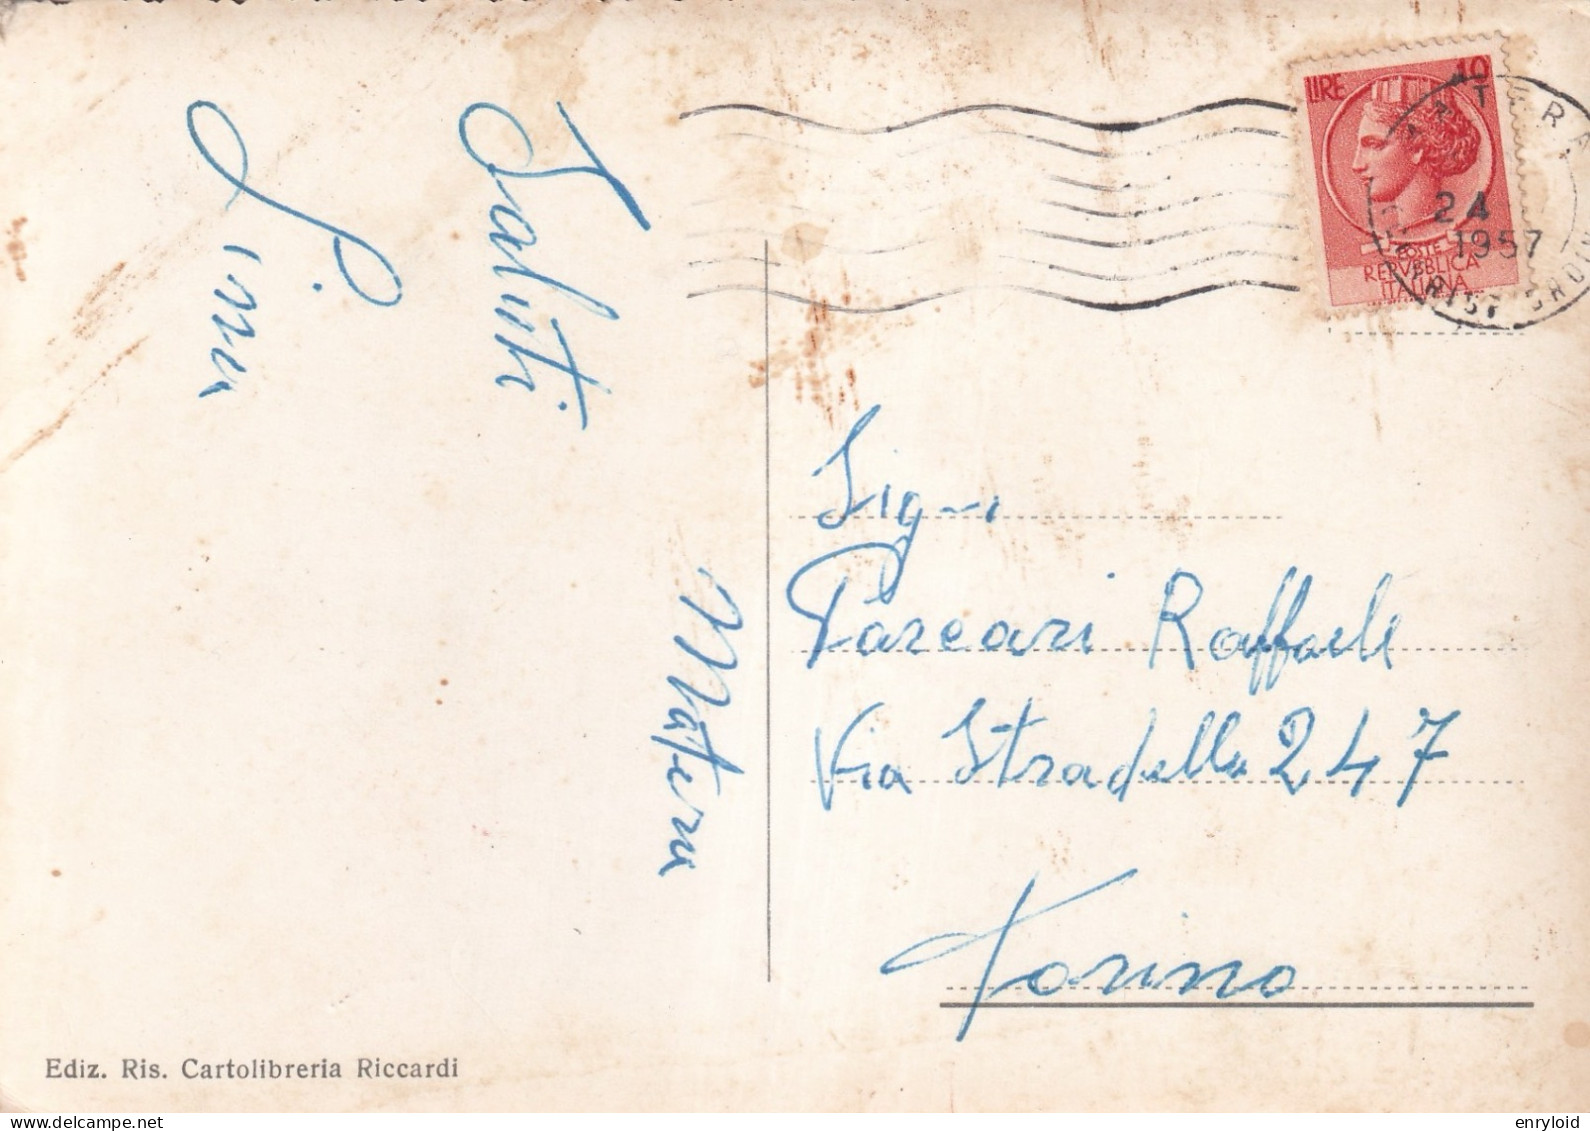 Saluti
Lina
Matera
LIRE 10
POSTE
REPVBBLICA
ITALIANA
24
1957
Sig-i
Parcari Raffaele
Via Stradella 247
Torino
Ediz. Ris. Cartolibreria Riccardi
enryloid